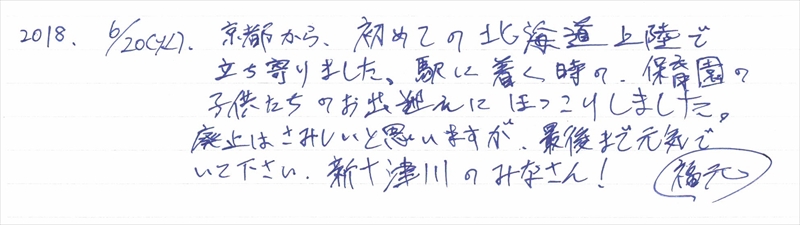 2018. 6/20(水). 京都から、初めての北海道上陸で
立ち寄りました。駅に着く時の、保育園の
子供たちのお出迎えにほっこりしました。
廃止はさみしいと思いますが、最後まで元気で
いて下さい。新十津川のみなさん! 福元